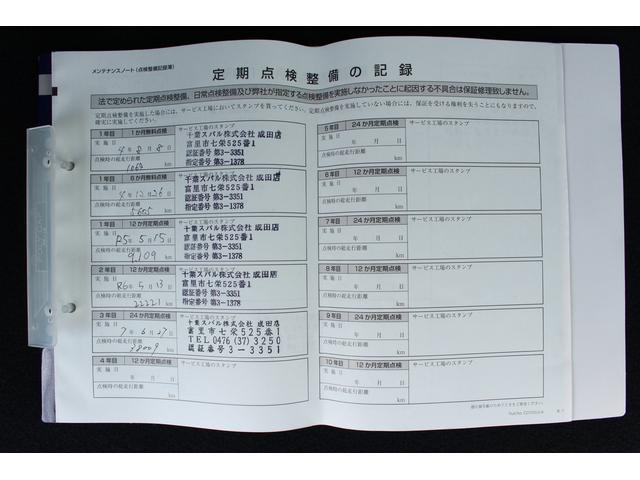 メンテナンスノート(点検整備記録簿)
定期点検整備の記録
法で定められた定期点検整備、日常点検整備及び弊社が指定する点検整備を実施しなかったことに起因する不具合は保証修理致しません。
定期点検整備を実施した場合には、サービス工場においてスタンプを貰ってください。定期点検整備を実施していない場合には、保証を受ける権利を失うことにもなりますので、
確実に実施してください。
1年目 1か月無料点検
サービス工場のスタンプ
実施日
4年8月8日
点検時の総走行距離
1063 km
千葉スバル株式会社 成田店
富里市七栄525番1
認証番号 第3-3351
指定番号 第3-1378
1年目 6か月無料点検
サービス工場のスタンプ
実施日
4年12月26日
点検時の総走行距離
5605 km
千葉スバル株式会社 成田店
富里市七栄525番1
認証番号 第3-3351
指定番号 第3-1378
1年目 12か月定期点検
サービス工場のスタンプ
実施日
R5年5月15日
点検時の総走行距離
9109 km
千葉スバル株式会社 成田店
富里市七栄525番1
認証番号 第3-3351
指定番号 第3-1378
2年目 12か月定期点検
サービス工場のスタンプ
実施日
点検時の総走行距離
22221 km
千葉スバル株式会社 成田店
富里市七栄525番1
認証番号 第3-3351
指定番号 第3-1378
3年目 24か月定期点検
サービス工場のスタンプ
実施日
7年6月27日
点検時の総走行距離
38009 km
千葉スバル株式会社 成田店
富里市七栄525番1
TEL0476(37)3250
認証番号 3-3351
4年目 12か月定期点検
サービス工場のスタンプ
実施日
年 月 日
点検時の総走行距離
km
5年目 24か月定期点検
サービス工場のスタンプ
実施日
年 月 日
点検時の総走行距離
km
6年目 12か月定期点検
サービス工場のスタンプ
実施日
年 月 日
点検時の総走行距離
km
7年目 24か月定期点検
サービス工場のスタンプ
実施日
年 月 日
点検時の総走行距離
km
8年目 12か月定期点検
サービス工場のスタンプ
実施日
年 月 日
点検時の総走行距離
km
9年目 24か月定期点検
サービス工場のスタンプ
実施日
年 月 日
点検時の総走行距離
km
10年目 12か月定期点検
サービス工場のスタンプ
実施日
年 月 日
点検時の総走行距離
km